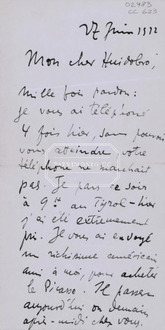 02483
CC 683
27 Juin 1922
Mon cher Huidobro,
Mille fois pardon:
je vous ai téléphoné
4 fois hier, sans pouvoir
vous atteindre, votre
téléphone ne marchait
pas. Je pars ce soir
à 9h au Tyrol – hier
j'ai été extrêmement
pris. Je vous ai envoyé
un richissime américain
ami à moi, pour acheter
le Picasso. Il passera
aujourd'hui ou demain
après-midi chez vous.